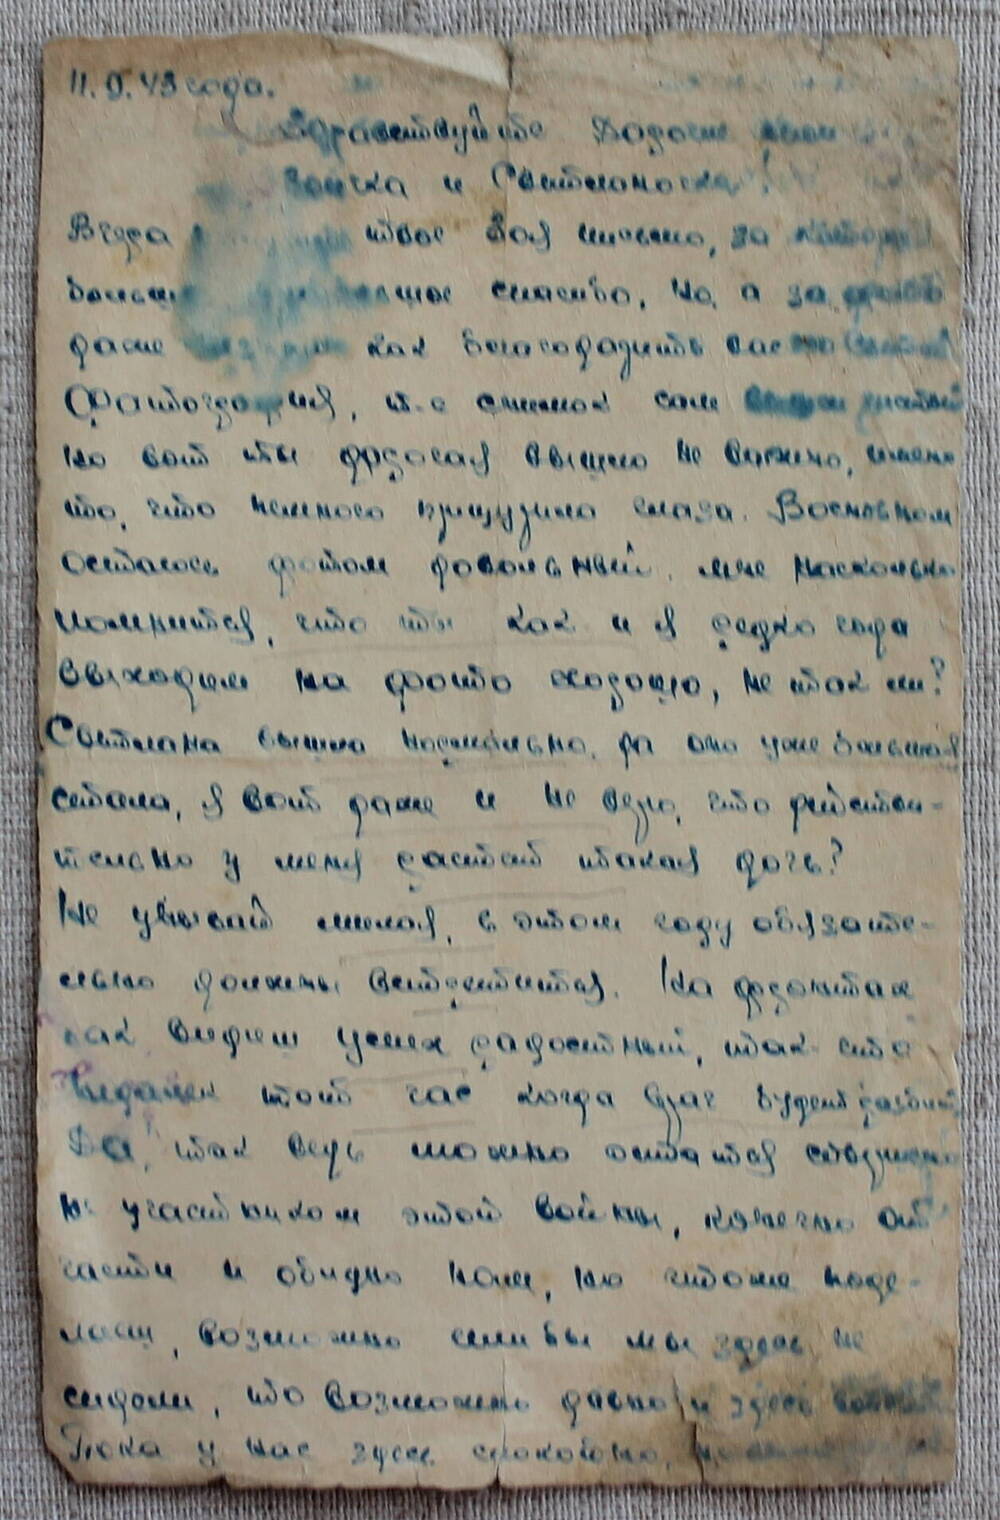 11.9.43 года.
Здравствуйте Дорогие мои
Зоичка и Светланочка!
Вчера твое Зоя письмо, за которое
большое спасибо. Но, а за
даже как благодарить вас
Фотография, т.е снимок сам
но вот ты дорогая вышла не важно, имено
то, что немного прищурила глаза. Восновном
осталось фотом довольный, мне насколько
помнится, что ты как и я редко когда
выходим на фото хорошо, не так ли?
Светлана вышла нормально, да она уже большая
стала, я вот даже и не верю, что действи-
тельно у меня растет такая дочь?
Не унывай милая, в этом году обязате-
льно должны встретится. На фронтах
как видиш успех радостный, так что
недалек тот час когда враг будет разбит
Да, так ведь можно остатся
не участником этой войны, конечно от
части и обидно нам, но чтоже поде-
лаеш, возможно если бы мы здесь не
сидели, то возможно давно и здесь
Пока у нас здесь спокойно,